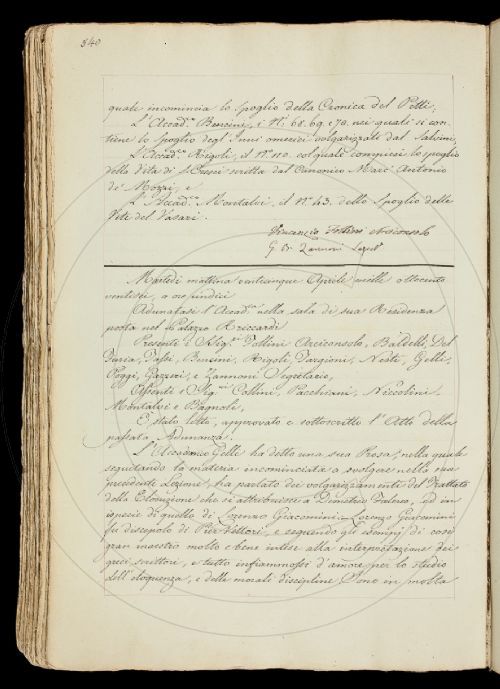 340
quale incomincia lo spoglio della Cronica del Pitti.
L'Accad.co Bencini, i N.i 68. 69. e 70. nei quali si con-
tiene lo spoglio degl'Inni omerici volgarizzati dal Salvini,
L'Accad.co Rigoli, il N.o 110. col quale compiesi lo spoglio
della Vita di S. Cresci scritta dal Canonico Marc' Antonio
de' Mozzi, e
L'Accad.co Montalvi, il N.o 43. dello Spoglio delle
Vite del Vasari.
Vincenzio Follini Arciconsolo
G. B. Zannoni Seg.o
Martedì mattina venticinque Aprile mille ottocento
ventisei, a ore undici
Adunatasi l'Accad.a nella sala di sua Residenza
posta nel Palazzo Riccardi
Presenti i Sig.ri Follini Arciconsolo, Baldelli, Del
Furia, Bencini, Rigoli, Targioni, Nesti, Gelli,
Poggi, Gazzeri, e Zannoni Segretario,
Assenti i Sig.ri Collini, Pacchiani, Niccolini,
Montalvi e Bagnoli,
È stato letto, approvato e sottoscritto l'Atto della
passata Adunanza.
L'Accademico Gelli ha detto una sua Prosa, nella quale
seguitando la materia incominciata a svolgere nella sua
precedente Lezione, ha parlato dei volgarizzamenti del Trattato
della Elocuzione che si attribuisce a Demetrio Falereo, ed in
ispecie di quello di Lorenzo Giacomini. Lorenzo Giacomini
fu discepolo di Pier Vettori, e seguendo gli esempj di così
gran maestro molto e bene intese alla interpretazione dei
greci scrittori, e tutto infiammossi d'amore per lo studio
dell'eloquenza, e delle morali discipline. Sono in molta